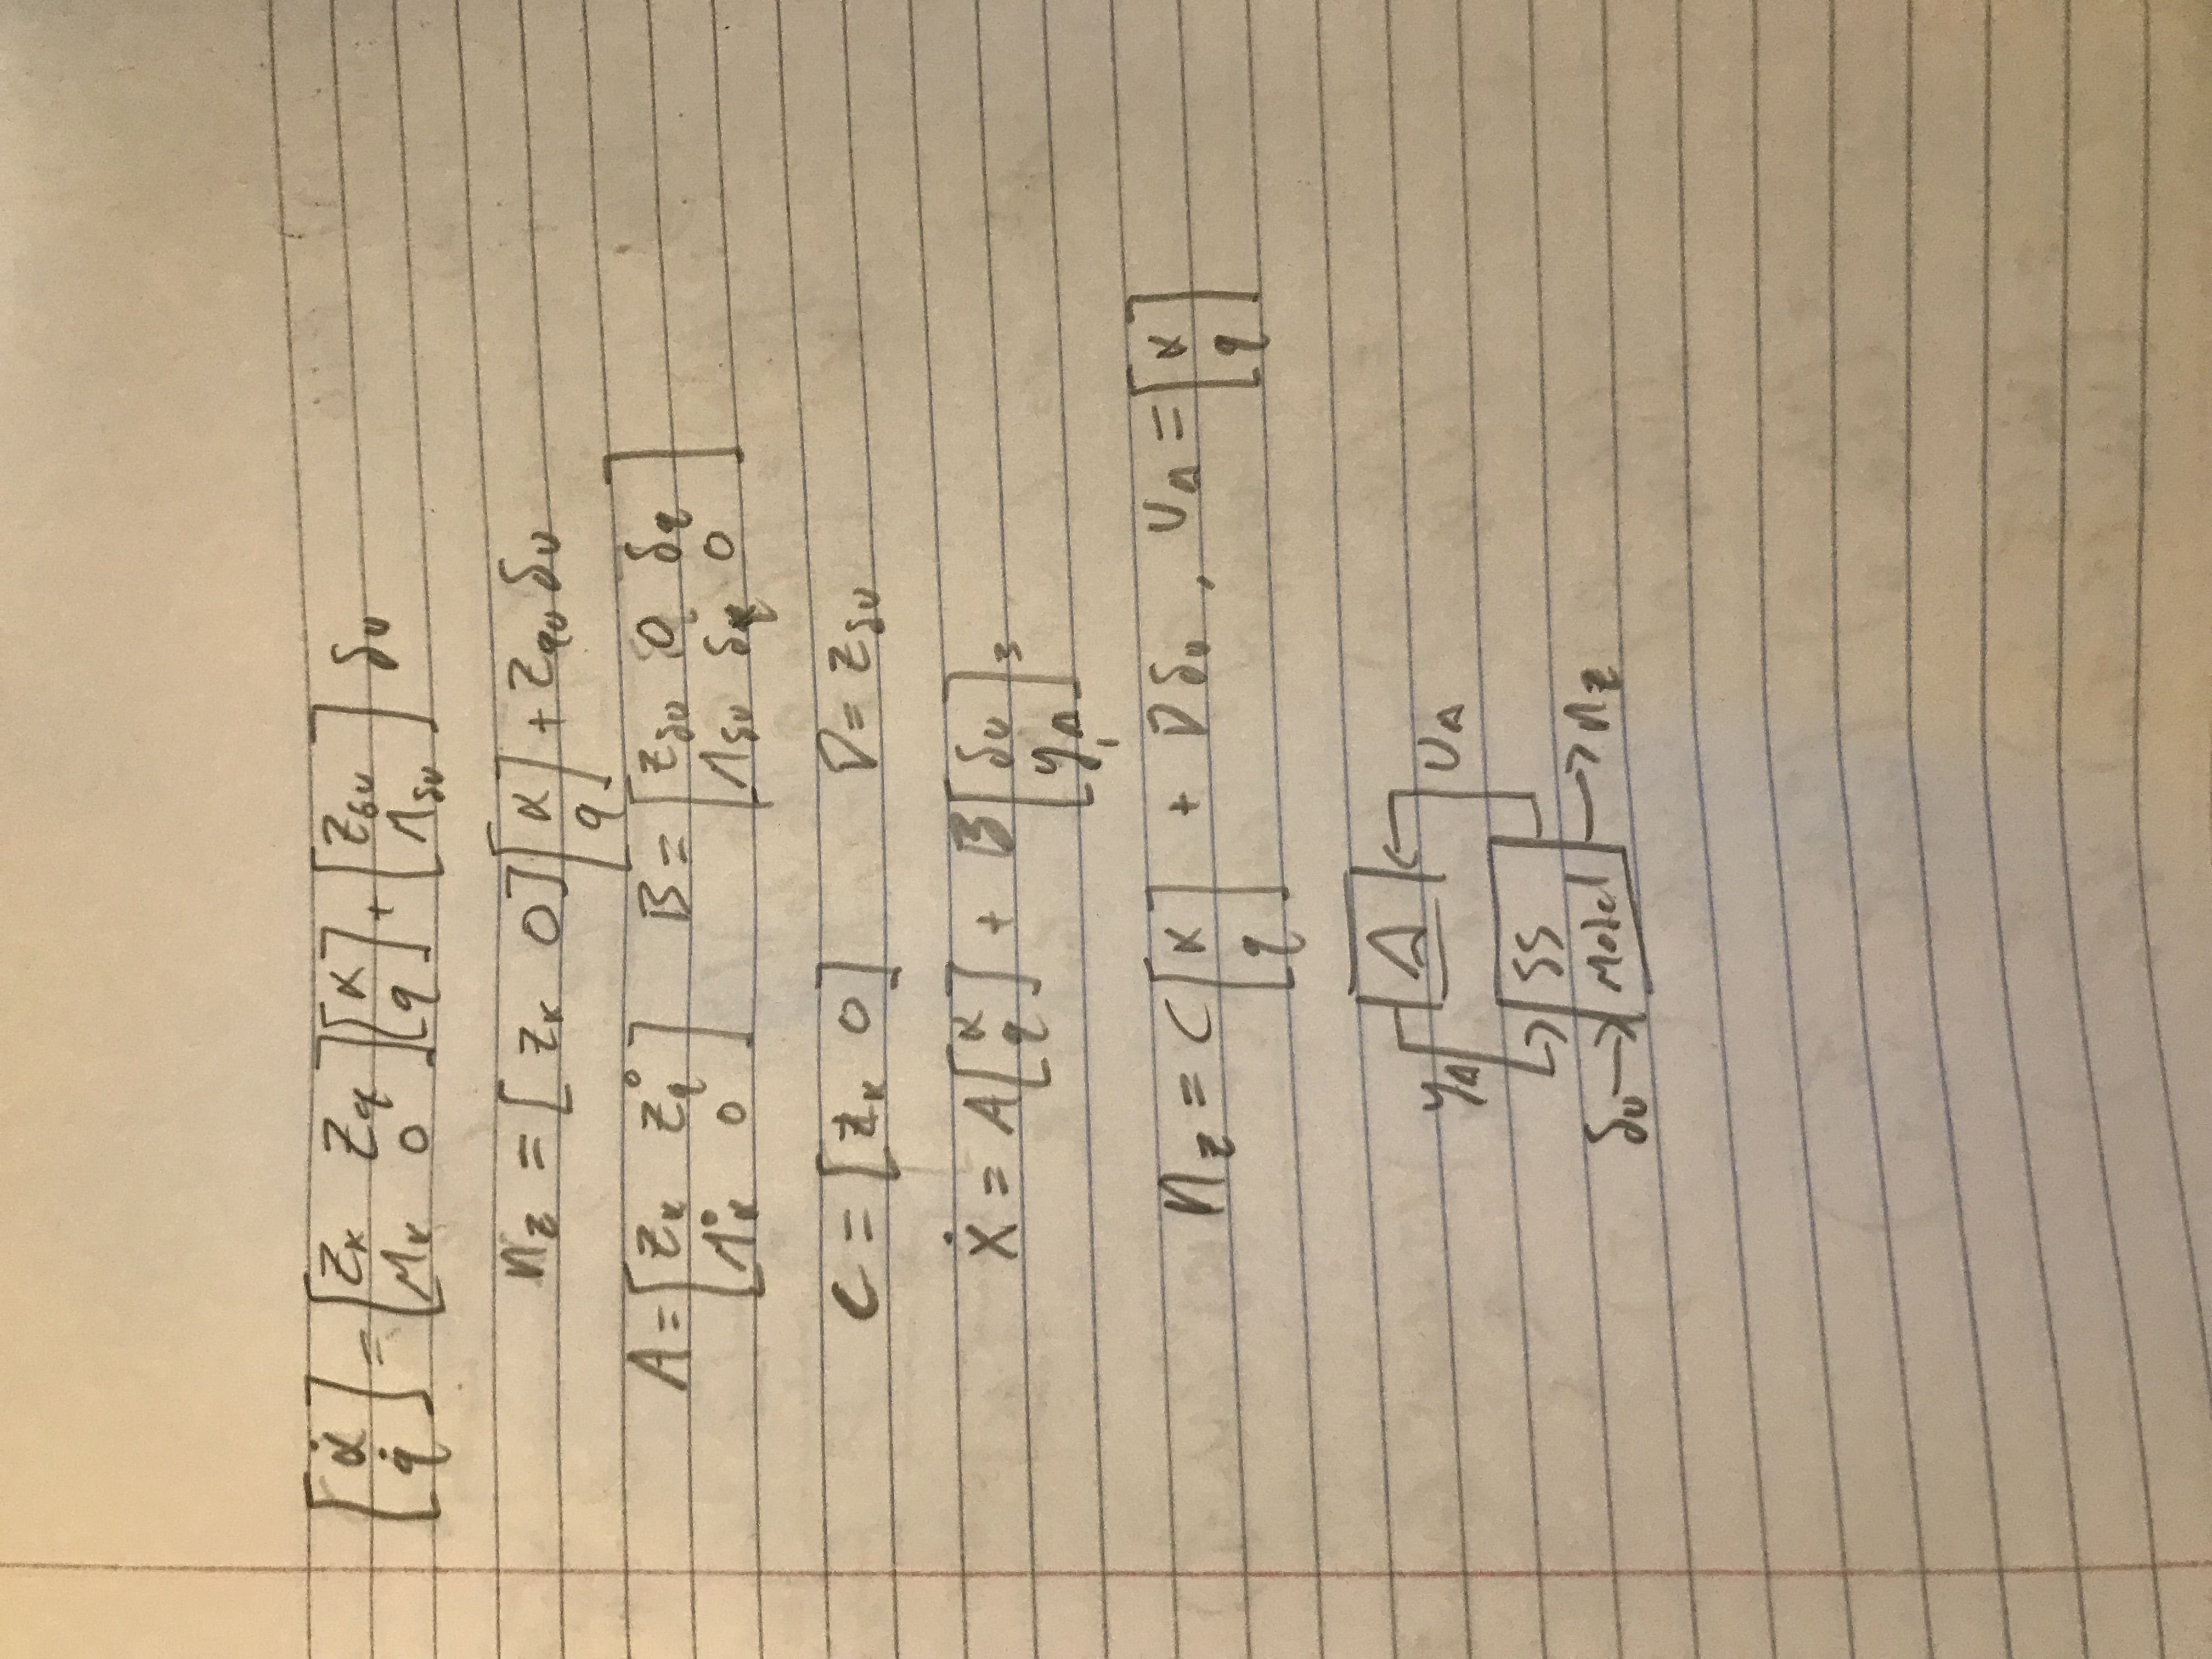 [α̇ q̇] = [Zα Zq Mα 0] [α q] + [Zδu Mδu] δu
nz = [Zα 0] [α q] + Zqu δu
A = [Zα Zq° M°α 0] B = [Zδu 0 δq Mδu δq 0]
C = [Zα 0] D = Zδu
Ẋ = A [α q] + B [δu yΔ],
nz = C [α q] + D δu , uΔ = [α q]
Δ
yΔ uΔ
SS
δu → Model → nz